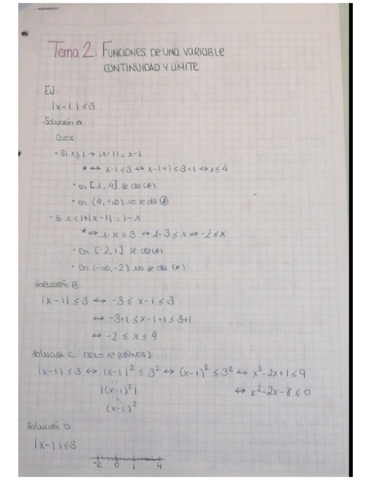 Tema 2: FUNCIONES DE UNA VARIABLE
CONTINUIDAD Y LÍMITE
EJ
|x-1| ≤ 3
Solución A:
- Si x≥1 → |x-1| = x-1
* ⇔ x-1 ≤ 3 ⇔ x-1+1 ≤ 3+1 ⇔ x ≤ 4
• en [1, 4] se da (*)
• en (4, +∞) no se da (*)
- Si x<1 → |x-1| = 1-x
* ⇔ 1-x ≤ 3 ⇔ 1-3 ≤ x ⇔ -2 ≤ x
• En [-2, 1] se da (*)
• En (-∞, -2) no se da (*)
Solución B:
|x-1| ≤ 3 ⇔ -3 ≤ x-1 ≤ 3
⇔ -3+1 ≤ x-1+1 ≤ 3+1
⇔ -2 ≤ x ≤ 4
Solución C
|x-1| ≤ 3 ⇔ |x-1|² ≤ 3² ⇔ (x-1)² ≤ 3² ⇔ x²-2x+1 ≤ 9
|(x-1)²|
⇔ x²-2x-8 ≤ 0
(x-1)²
Solución D:
|x-1| ≤ 3
-2 0 1 4